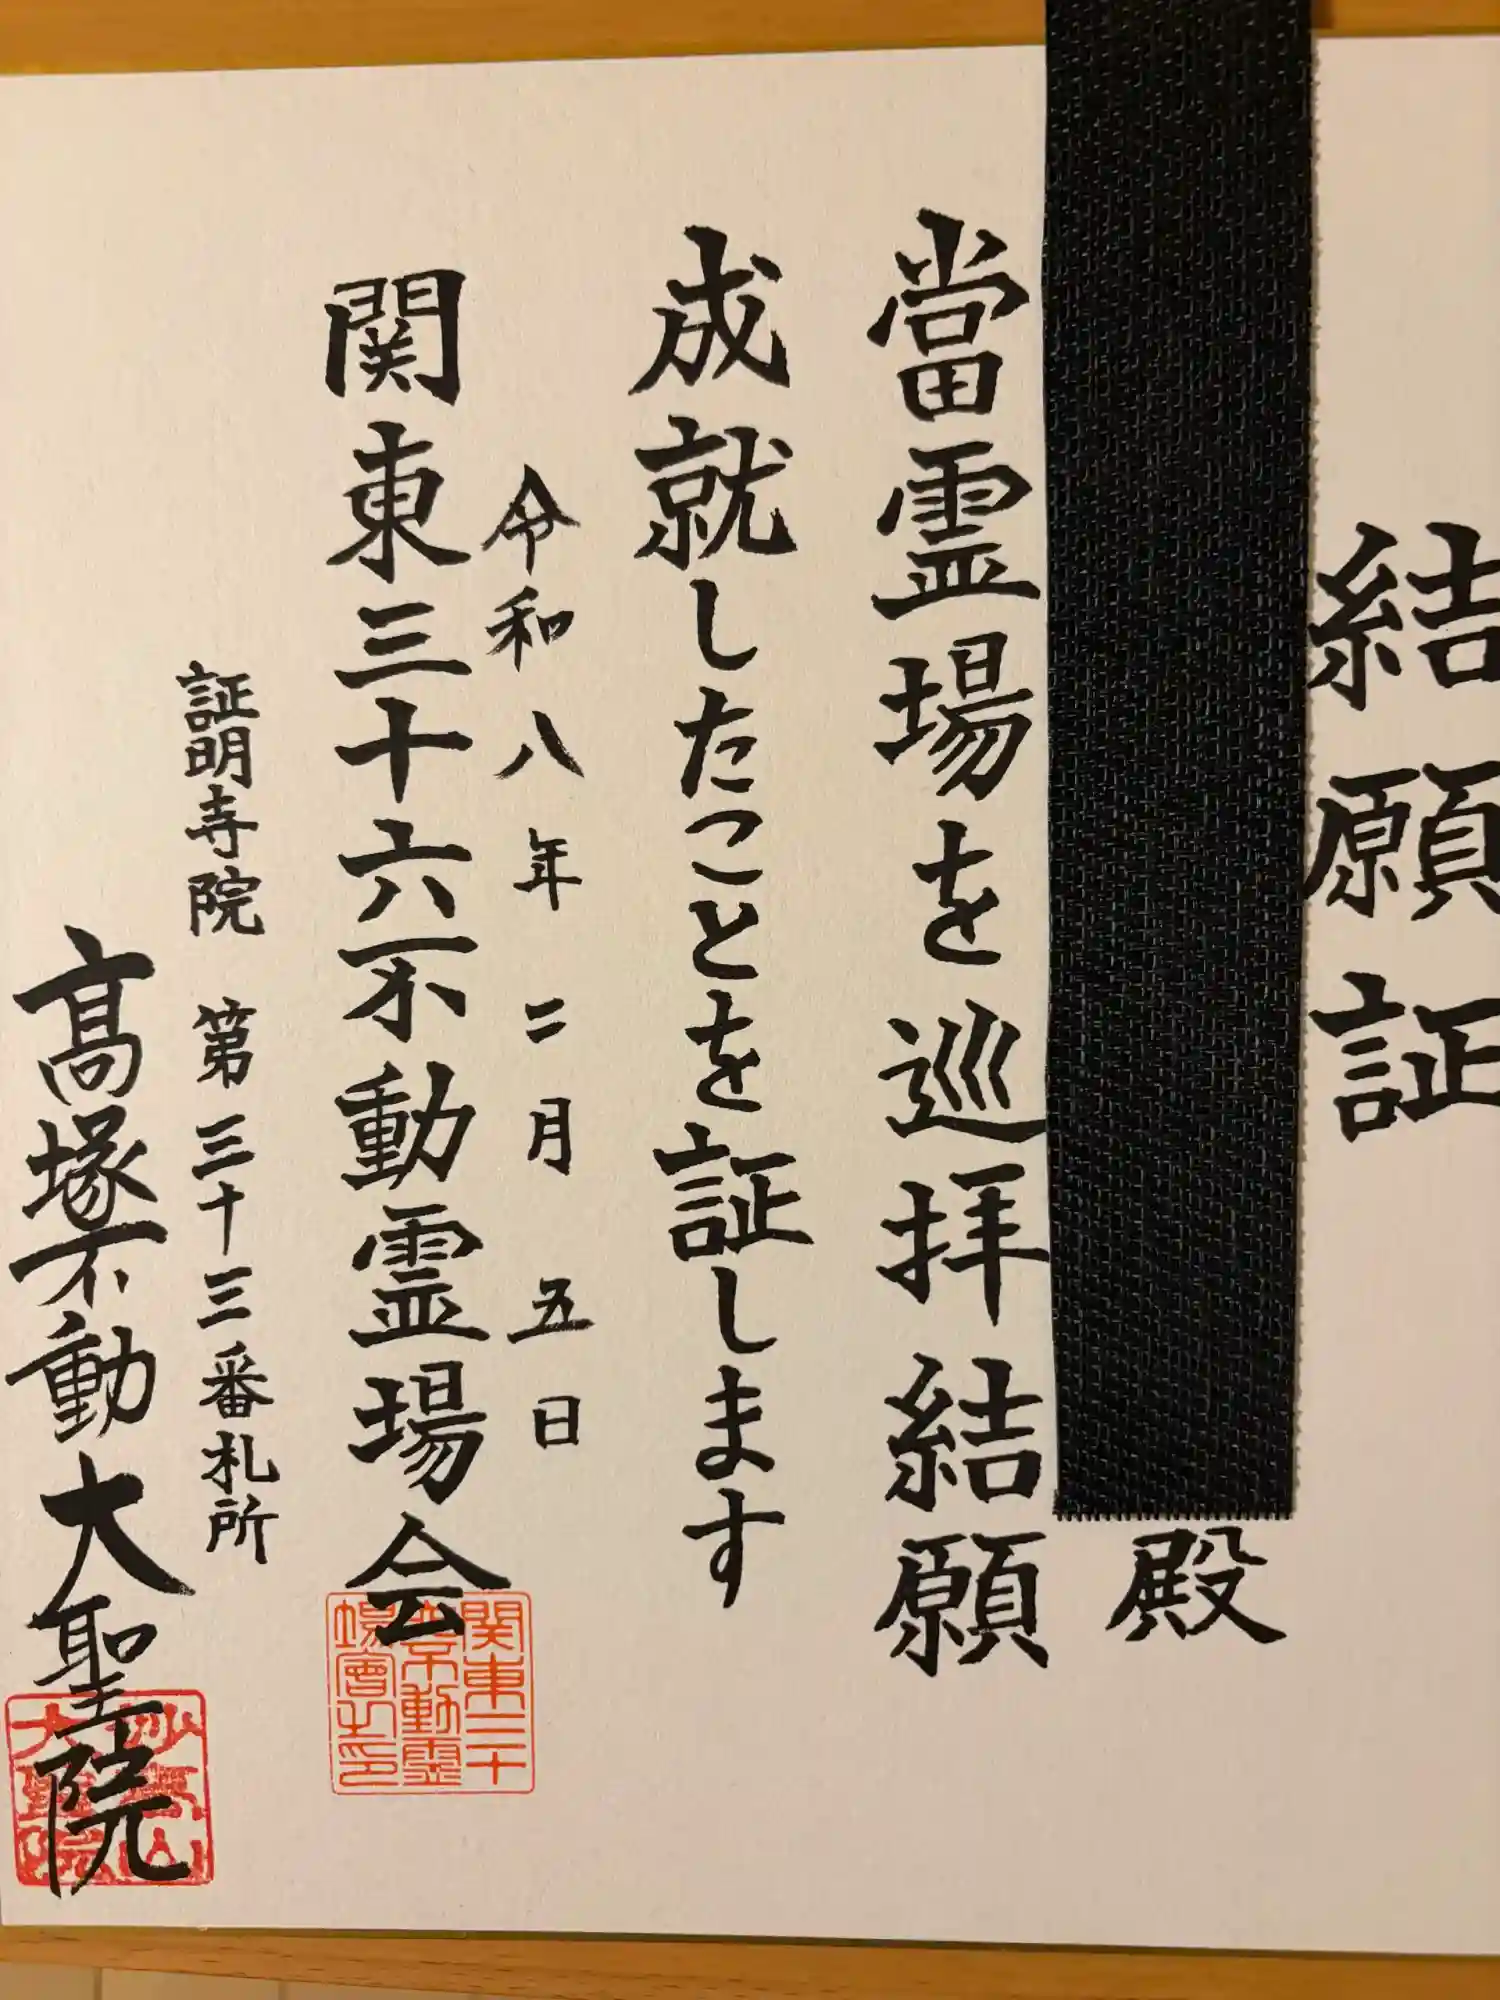 結願証
殿
當霊場を巡拝結願
成就したことを証します
令和八年二月五日
関東三十六不動霊場会
証明寺院 第三十三番札所
髙塚不動大聖院